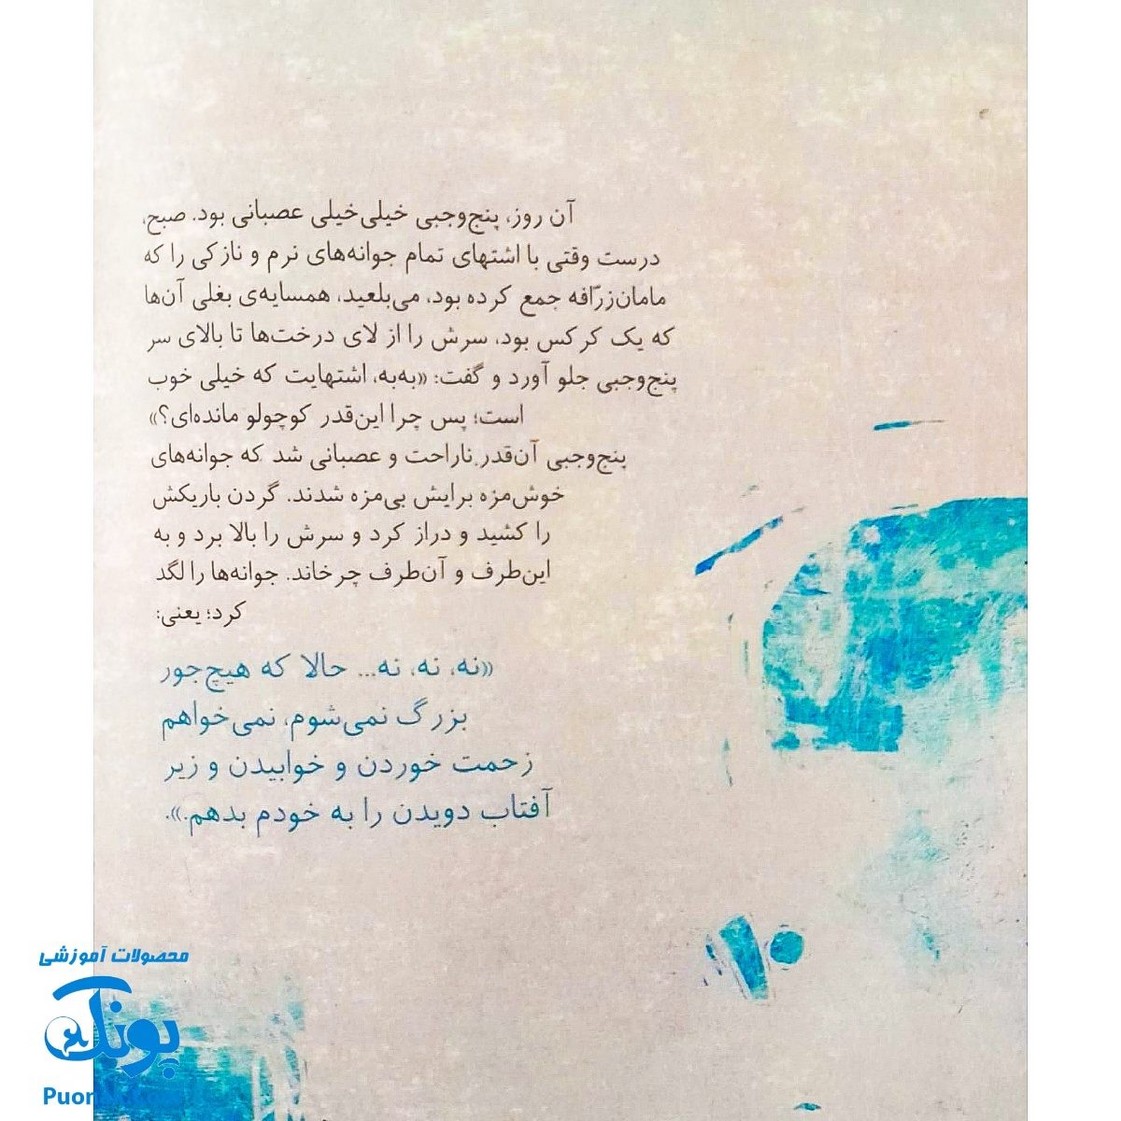 آن روز، پنج‌وجبی خیلی‌خیلی عصبانی بود. صبح،
درست وقتی با اشتهای تمام جوانه‌های نرم و نازکی را که
مامان‌زرّافه جمع کرده بود، می‌بلعید، همسایه‌ی بغلی آن‌ها
که یک کرکس بود، سرش را از لای درخت‌ها تا بالای سر
پنج‌وجبی جلو آورد و گفت: «به‌به، اشتهایت که خیلی خوب
است؛ پس چرا این‌قدر کوچولو مانده‌ای؟»
پنج‌وجبی آن‌قدر ناراحت و عصبانی شد که جوانه‌های
خوش‌مزه برایش بی‌مزه شدند. گردن باریکش
را کشید و دراز کرد و سرش را بالا برد و به
این‌طرف و آن‌طرف چرخاند. جوانه‌ها را لگد
کرد؛ یعنی:
«نه، نه، نه... حالا که هیچ‌جور
بزرگ نمی‌شوم، نمی‌خواهم
زحمت خوردن و خوابیدن و زیر
آفتاب دویدن را به خودم بدهم.».
محصولات آموزشی
پونک